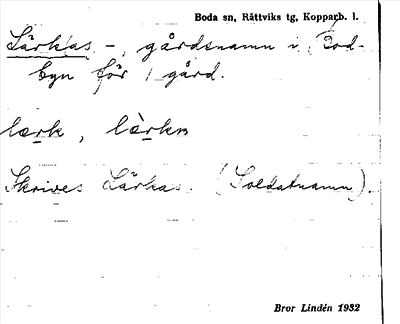 Boda sn, Rättviks tg, Kopparb. l.
Lärkas -, gårdsnamn i Bod-
byn för 1 gård.
lærk, lærkɷ
Skrives Lärkas. (Soldatnamn).
Bror Lindén 1932